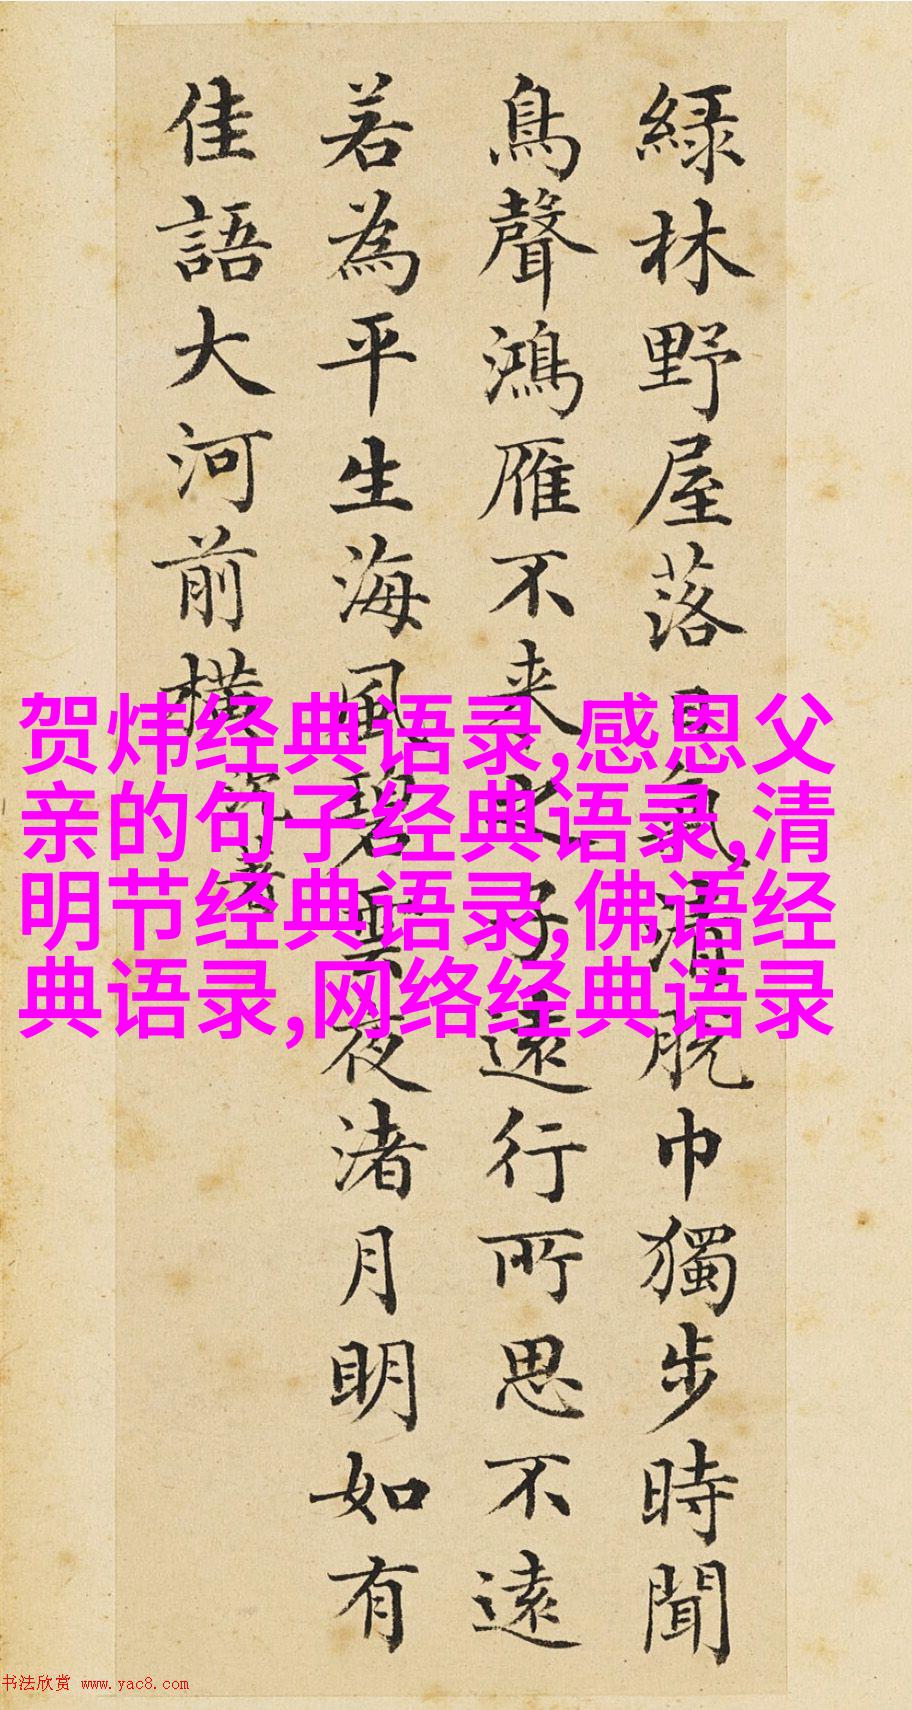 綠林野屋落日氣清脫巾獨步時聞
鳥聲鴻雁不来之子遠行所思不遠
若為平生海風碧雲夜渚月明如有
佳語大河前橫
贺炜经典语录,感恩父
亲的句子经典语录,清
明节经典语录,佛语经
典语录,网络经典语录
书法欣赏 www.yac8.com